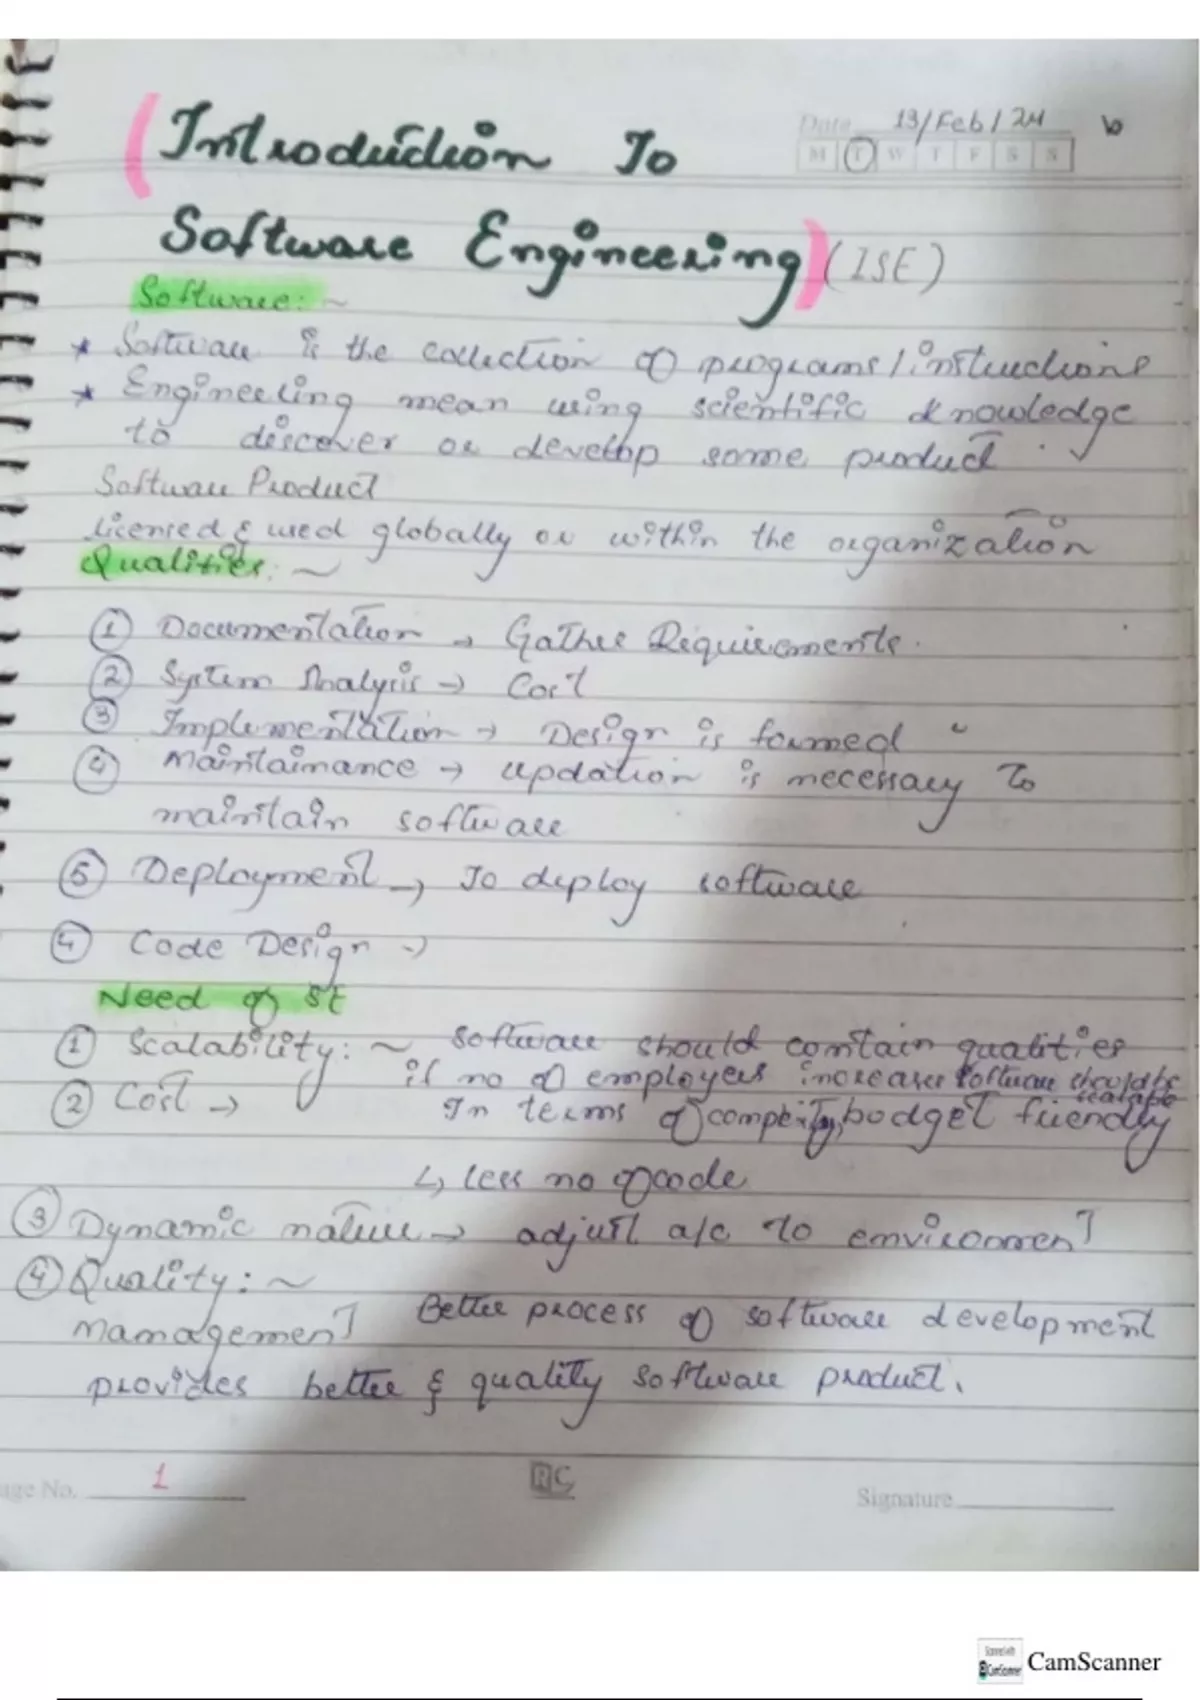 Date 13/Feb/24
M T W T F S S
(Introduction To
Software Engineering) (ISE)
Software: ~
* Software is the collection of programs / instructions
* Engineering mean using scientific knowledge
to discover or develop some product.
Software Product
licensed & used globally or within the organization
Qualities: ~
① Documentation → Gather Requirements.
② System Analysis → Cost
③ Implementation → Design is formed
④ Maintainance → updation is necessary To
maintain software
⑤ Deployment → To deploy software
④ Code Design →
Need of SE
① Scalability: ~ Software should contain qualities
if no of employees increases software should be
scalable
② Cost → In terms of budget friendly
↳ less no of code
③ Dynamic nature → adjust a/c to environment
④ Quality: ~
Management Better process of software development
provides better & quality software product.
Page No. 1
RC
Signature
Scanned with
CamScanner
CamScanner